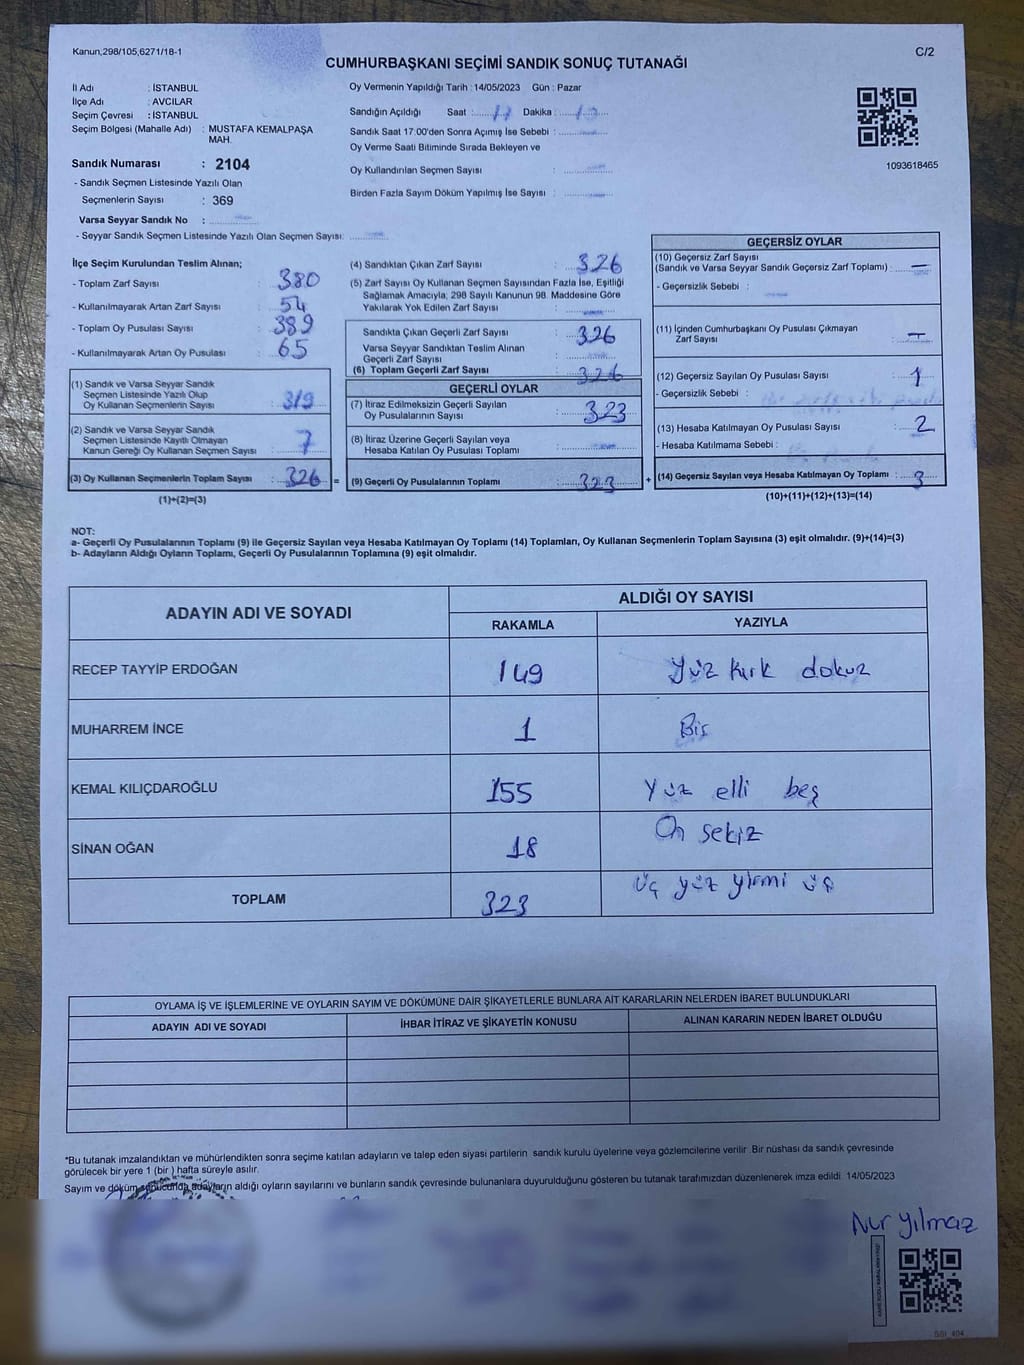 Kanun,298/105,6271/18-1
C/2
CUMHURBAŞKANI SEÇİMİ SANDIK SONUÇ TUTANAĞI
İl Adı : İSTANBUL
İlçe Adı : AVCILAR
Seçim Çevresi : İSTANBUL
Seçim Bölgesi (Mahalle Adı) : MUSTAFA KEMALPAŞA
MAH.
Sandık Numarası : 2104
- Sandık Seçmen Listesinde Yazılı Olan
Seçmenlerin Sayısı : 369
Varsa Seyyar Sandık No :
- Seyyar Sandık Seçmen Listesinde Yazılı Olan Seçmen Sayısı:
Oy Vermenin Yapıldığı Tarih : 14/05/2023 Gün : Pazar
Sandığın Açıldığı Saat : 17 Dakika :
Sandık Saat 17:00'den Sonra Açımış İse Sebebi :
Oy Verme Saati Bitiminde Sırada Bekleyen ve
Oy Kullandırılan Seçmen Sayısı :
Birden Fazla Sayım Döküm Yapılmış İse Sayısı :
1093618465
İlçe Seçim Kurulundan Teslim Alınan;
- Toplam Zarf Sayısı : 380
- Kullanılmayarak Artan Zarf Sayısı : 54
- Toplam Oy Pusulası Sayısı : 389
- Kullanılmayarak Artan Oy Pusulası : 65
(1) Sandık ve Varsa Seyyar Sandık
Seçmen Listesinde Yazılı Olup
Oy Kullanan Seçmenlerin Sayısı : 319
(2) Sandık ve Varsa Seyyar Sandık
Seçmen Listesinde Kayıtlı Olmayan
Kanun Gereği Oy Kullanan Seçmen Sayısı : 7
(3) Oy Kullanan Seçmenlerin Toplam Sayısı : 326
(1)+(2)=(3)
=
(4) Sandıktan Çıkan Zarf Sayısı : 326
(5) Zarf Sayısı Oy Kullanan Seçmen Sayısından Fazla İse, Eşitliği
Sağlamak Amacıyla, 298 Sayılı Kanunun 98. Maddesine Göre
Yakılarak Yok Edilen Zarf Sayısı :
Sandıkta Çıkan Geçerli Zarf Sayısı : 326
Varsa Seyyar Sandıktan Teslim Alınan
Geçerli Zarf Sayısı :
(6) Toplam Geçerli Zarf Sayısı : 326
GEÇERLİ OYLAR
(7) İtiraz Edilmeksizin Geçerli Sayılan
Oy Pusulalarının Sayısı : 323
(8) İtiraz Üzerine Geçerli Sayılan veya
Hesaba Katılan Oy Pusulası Toplamı :
(9) Geçerli Oy Pusulalarının Toplamı : 323
+
GEÇERSİZ OYLAR
(10) Geçersiz Zarf Sayısı
(Sandık ve Varsa Seyyar Sandık Geçersiz Zarf Toplamı) : —
- Geçersizlik Sebebi :
(11) İçinden Cumhurbaşkanı Oy Pusulası Çıkmayan
Zarf Sayısı : —
(12) Geçersiz Sayılan Oy Pusulası Sayısı : 1
- Geçersizlik Sebebi :
(13) Hesaba Katılmayan Oy Pusulası Sayısı : 2
- Hesaba Katılmama Sebebi :
(14) Geçersiz Sayılan veya Hesaba Katılmayan Oy Toplamı : 3
(10)+(11)+(12)+(13)=(14)
NOT:
a- Geçerli Oy Pusulalarının Toplamı (9) ile Geçersiz Sayılan veya Hesaba Katılmayan Oy Toplamı (14) Toplamları, Oy Kullanan Seçmenlerin Toplam Sayısına (3) eşit olmalıdır. (9)+(14)=(3)
b- Adayların Aldığı Oyların Toplamı, Geçerli Oy Pusulalarının Toplamına (9) eşit olmalıdır.
ADAYIN ADI VE SOYADI
ALDIĞI OY SAYISI
RAKAMLA YAZIYLA
RECEP TAYYİP ERDOĞAN 149 Yüz kırk dokuz
MUHARREM İNCE 1 Bir
KEMAL KILIÇDAROĞLU 155 Yüz elli beş
SİNAN OĞAN 18 On sekiz
TOPLAM 323 üç yüz yirmi üç
OYLAMA İŞ VE İŞLEMLERİNE VE OYLARIN SAYIM VE DÖKÜMÜNE DAİR ŞİKAYETLERLE BUNLARA AİT KARARLARIN NELERDEN İBARET BULUNDUKLARI
ADAYIN ADI VE SOYADI İHBAR İTİRAZ VE ŞİKAYETİN KONUSU ALINAN KARARIN NEDEN İBARET OLDUĞU
*Bu tutanak imzalandıktan ve mühürlendikten sonra seçime katılan adayların ve talep eden siyasi partilerin sandık kurulu üyelerine veya gözlemcilerine verilir. Bir nüshası da sandık çevresinde
görülecek bir yere 1 (bir ) hafta süreyle asılır.
Sayım ve döküm sonucunda adayların aldığı oyların sayılarını ve bunların sandık çevresinde bulunanlara duyurulduğunu gösteren bu tutanak tarafımızdan düzenlenerek imza edildi 14/05/2023
Nur Yılmaz